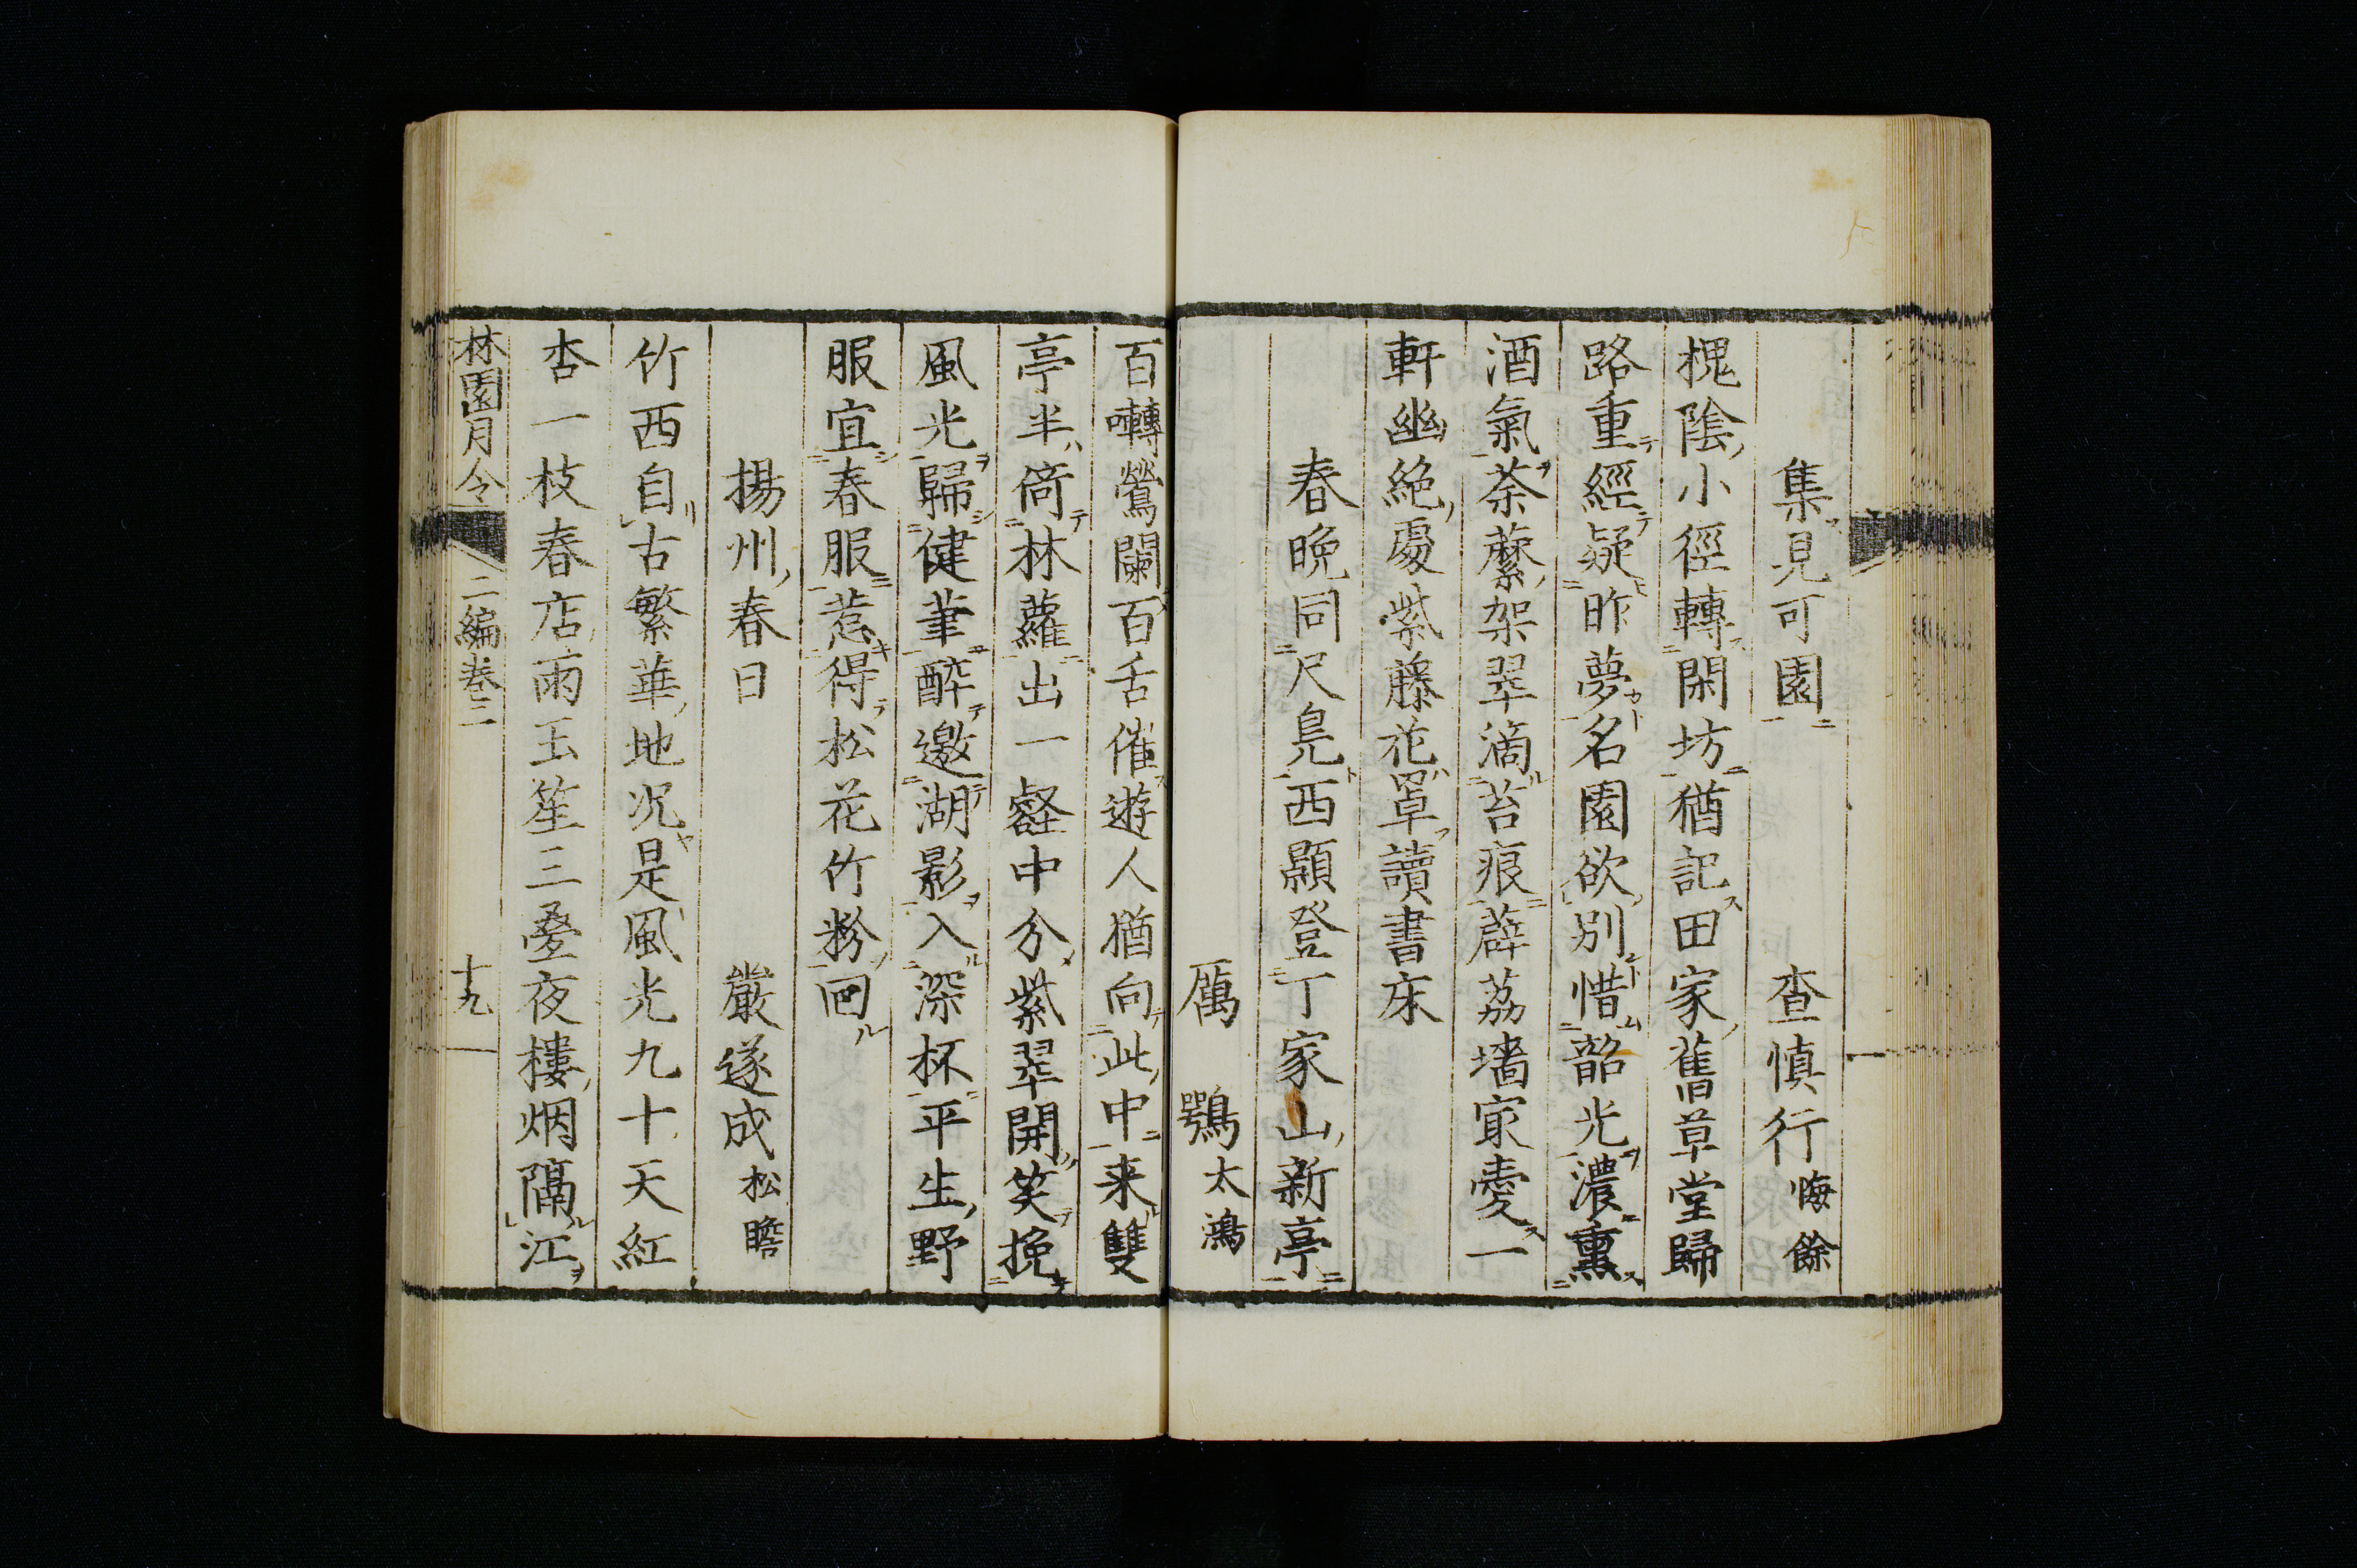 集見可園　　査慎行悔餘
槐陰小徑轉閑坊猶記田家舊草堂歸
路重經疑昨夢名園欲別惜韶光濃熏
酒氣荼蘼架翠滴苔痕薜荔墻最愛一
軒幽絶處紫藤花罩讀書床
春晩同尺鳧西顥登丁家山新亭
厲鶚太鴻
百囀鶯闌百舌催遊人猶向此中来雙
亭半倚林蘿出一壑中分紫翠開笑挽
風光歸健筆醉邀湖影入深杯平生野
服宜春服惹得松花竹粉回
揚州春日　　嚴遂成松瞻
竹西自古繁華地况是風光九十天紅
杏一枝春店雨玉笙三疊夜樓烟隔江
林園月令　二編卷三　十九